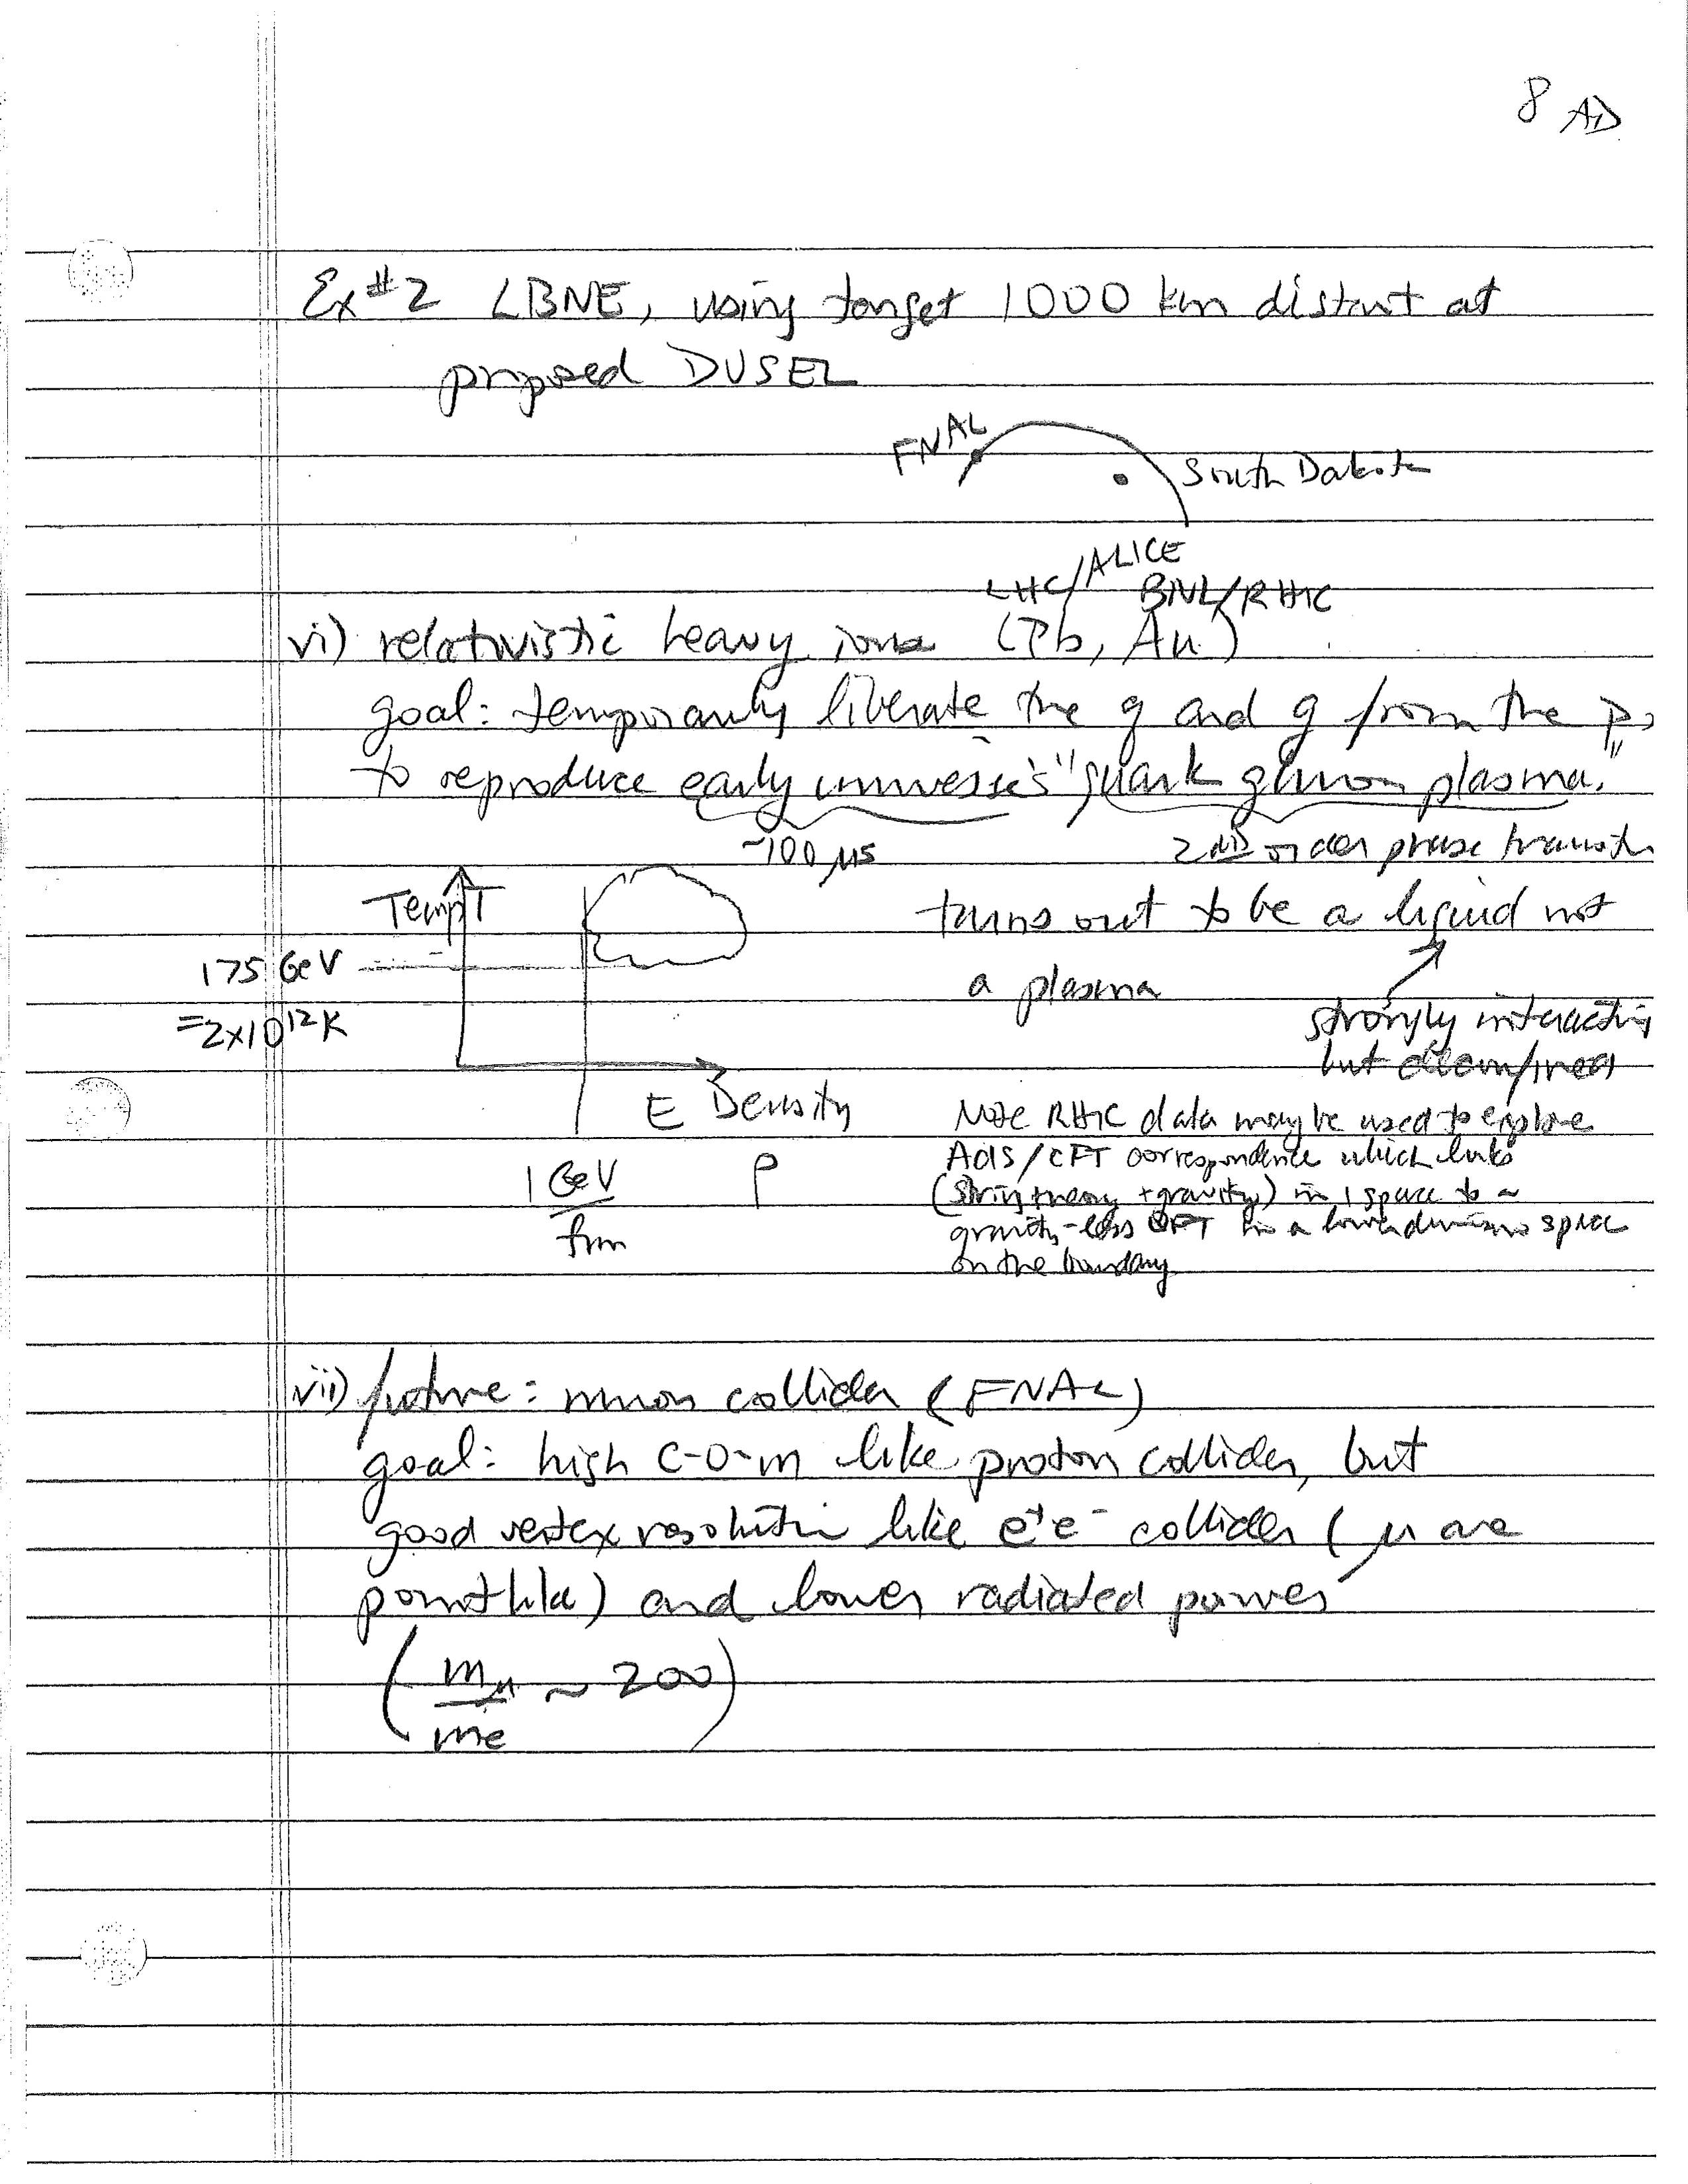 8 AD
Ex #2 LBNE, using target 1000 km distant at
proposed DUSEL
FNAL
South Dakota
LHC/ALICE
BNL/RHIC
vi) relativistic heavy ions (Pb, Au)
goal: temporarily liberate the q and g from the p,
to reproduce early universe's "quark gluon plasma."
~100 µs
2nd order phase transitn
Temp T
turns out to be a liquid not
175 GeV
a plasma
=2x10^12 K
strongly interacting
but deconfined
E Density
ρ
1 GeV
fm
Note RHIC data may be used to explore
AdS/CFT correspondence which links
(string theory + gravity) in 1 space to a
gravity-less QFT in a lower dimens space
on the boundary
vii) future: muon collider (FNAL)
goal: high c-o-m like proton collider, but
good vertex resolution like e+e- collider (µ are
pointlike) and lower radiated power
(mµ/me ~ 200)